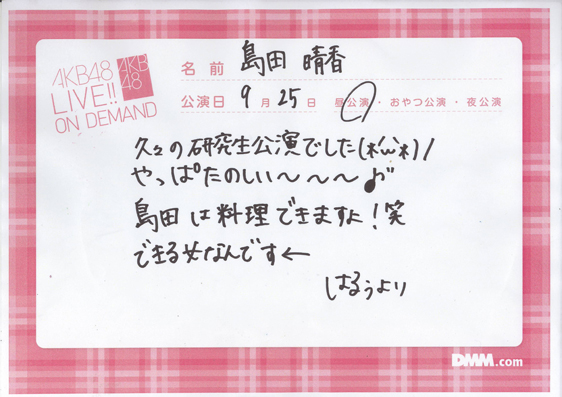 AKB48
LIVE!!
ON DEMAND
AKB
48
名前 島田 晴香
公演日 9月25日 昼公演・おやつ公演・夜公演
久々の研究生公演でした(*´ω`*)ﾉ
やっぱたのしい〜〜〜♪
島田は料理できますよ!笑
できる女なんです←
はるぅより
DMM.com